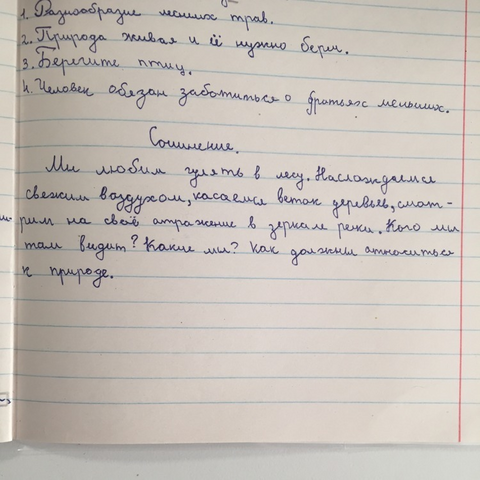 1. Разнообразие лесных трав.
2. Природа живая и её нужно беречь.
3. Берегите птиц.
4. Человек обязан заботиться о братьях меньших.
Сочинение.
Мы любим гулять в лесу. Наслаждаемся
свежим воздухом, касаемся веток деревьев, смот-
рим на своё отражение в зеркале реки. Кого мы
там видим? Какие мы? Как должны относиться
к природе.